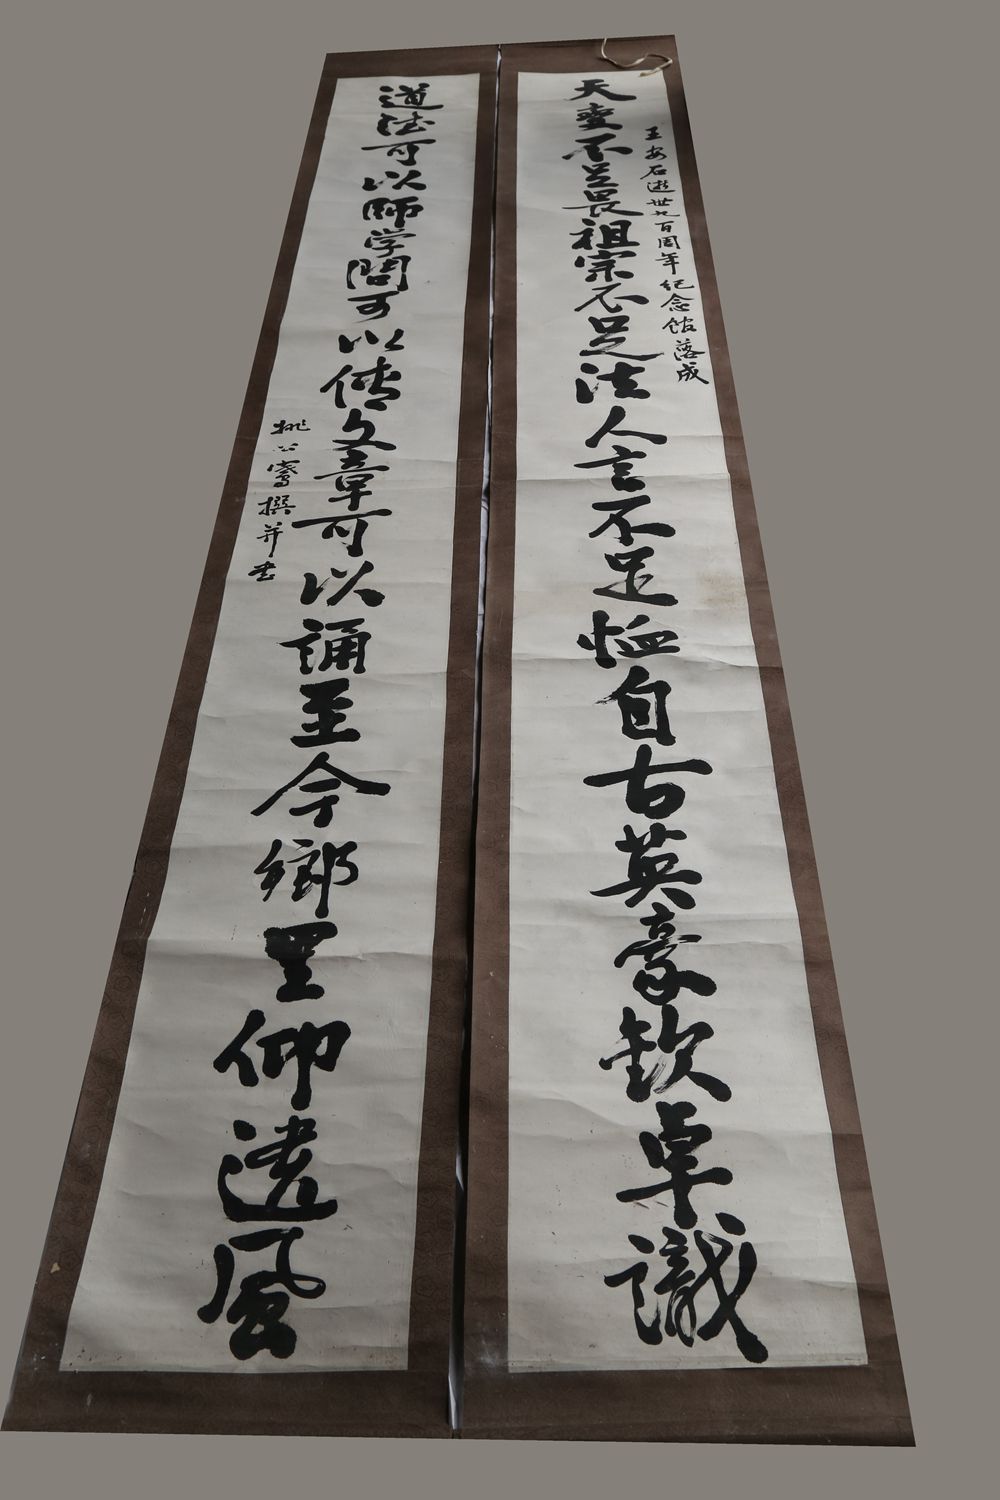 王安石逝世九百周年纪念馆落成
天变不足畏祖宗不足法人言不足恤自古英豪欽卓識
道德可以師学問可以傳文章可以誦至今鄉里仰遗風
姚公骞撰并书